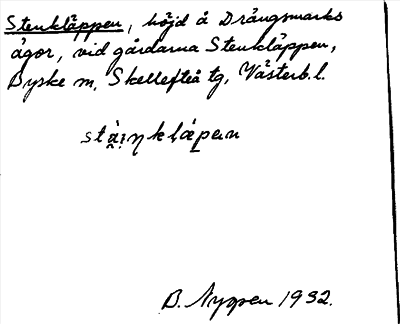 Stenkläppen, höjd å Drängsmarks
ägor, vid gårdarna Stenkläppen,
Byske sn, Skellefteå tg, Västerb. l.
B. Nygren 1932.